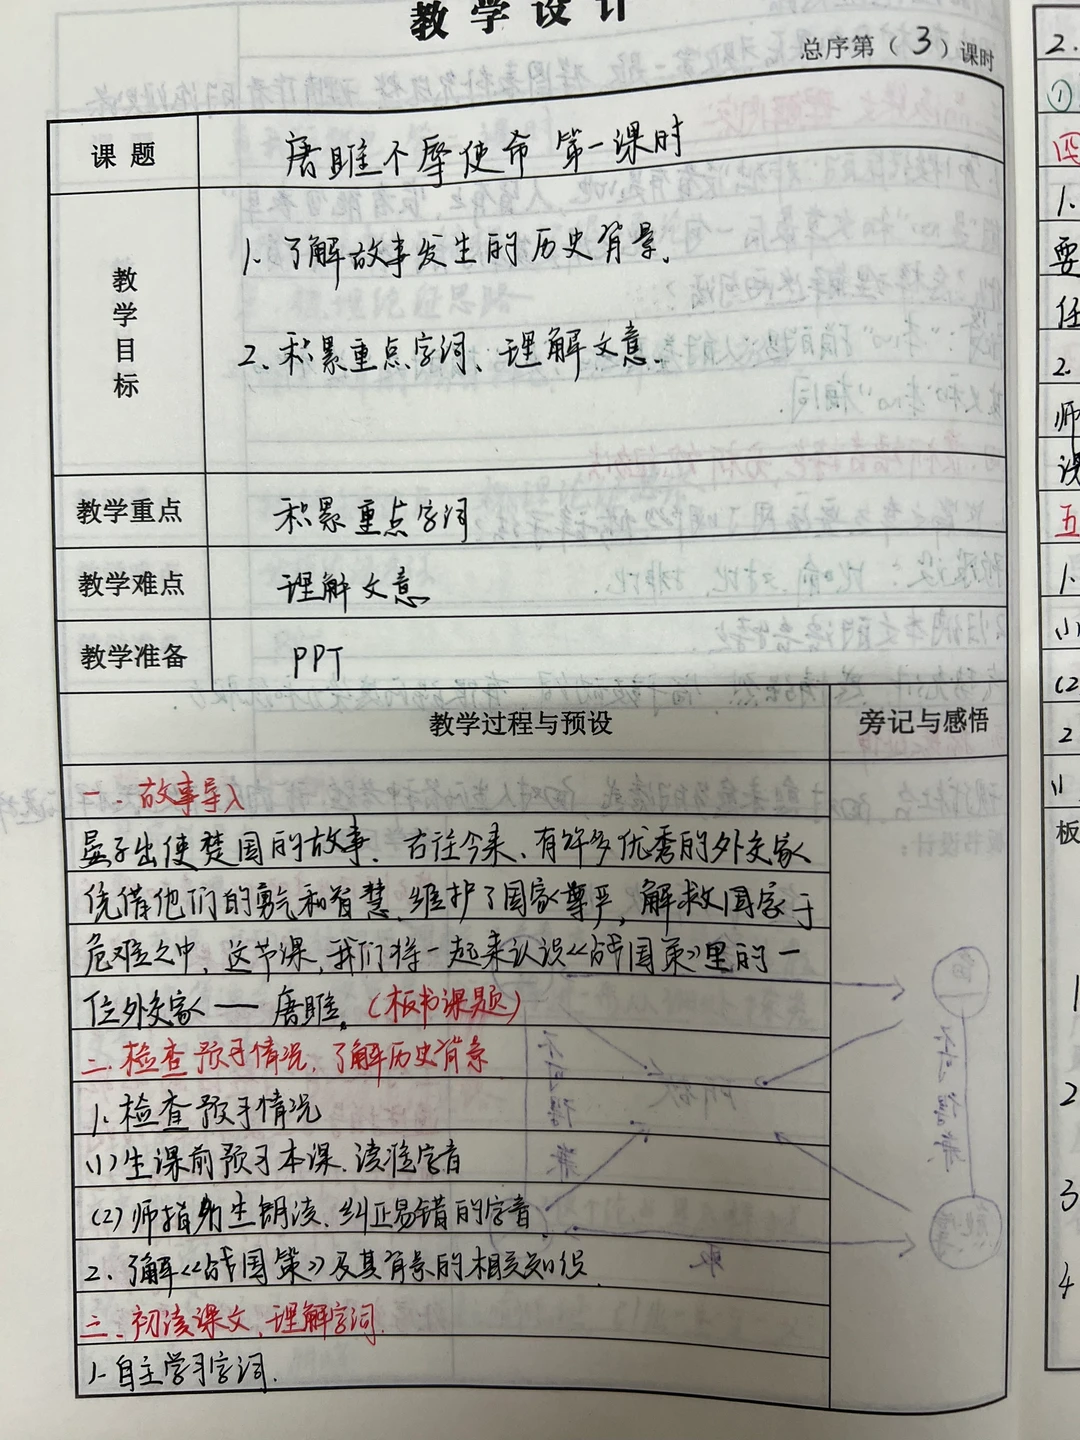 教学设计
总序第（3）课时
课题
唐雎不辱使命 第一课时
教学目标
1. 了解故事发生的历史背景.
2. 积累重点字词、理解文意.
教学重点
积累重点字词
教学难点
理解文意
教学准备
PPT
教学过程与预设
旁记与感悟
一. 故事导入
晏子出使楚国的故事. 古往今来、有许多优秀的外交家
凭借他们的勇气和智慧. 维护了国家尊严, 解救国家于
危难之中. 这节课, 我们将一起来认识《战国策》里的一
位外交家——唐雎。(板书课题)
二. 检查预习情况, 了解历史背景
1. 检查预习情况
(1) 生课前预习本课. 读准字音
(2) 师指名生朗读、纠正易错的字音
2. 了解《战国策》及其背景的相关知识
三. 初读课文, 理解字词.
1. 自主学习字词.
2.
①
四
1.
要
任
2.
师
误
五
1.
(1)
(2
2
11
板
1
2
3
4